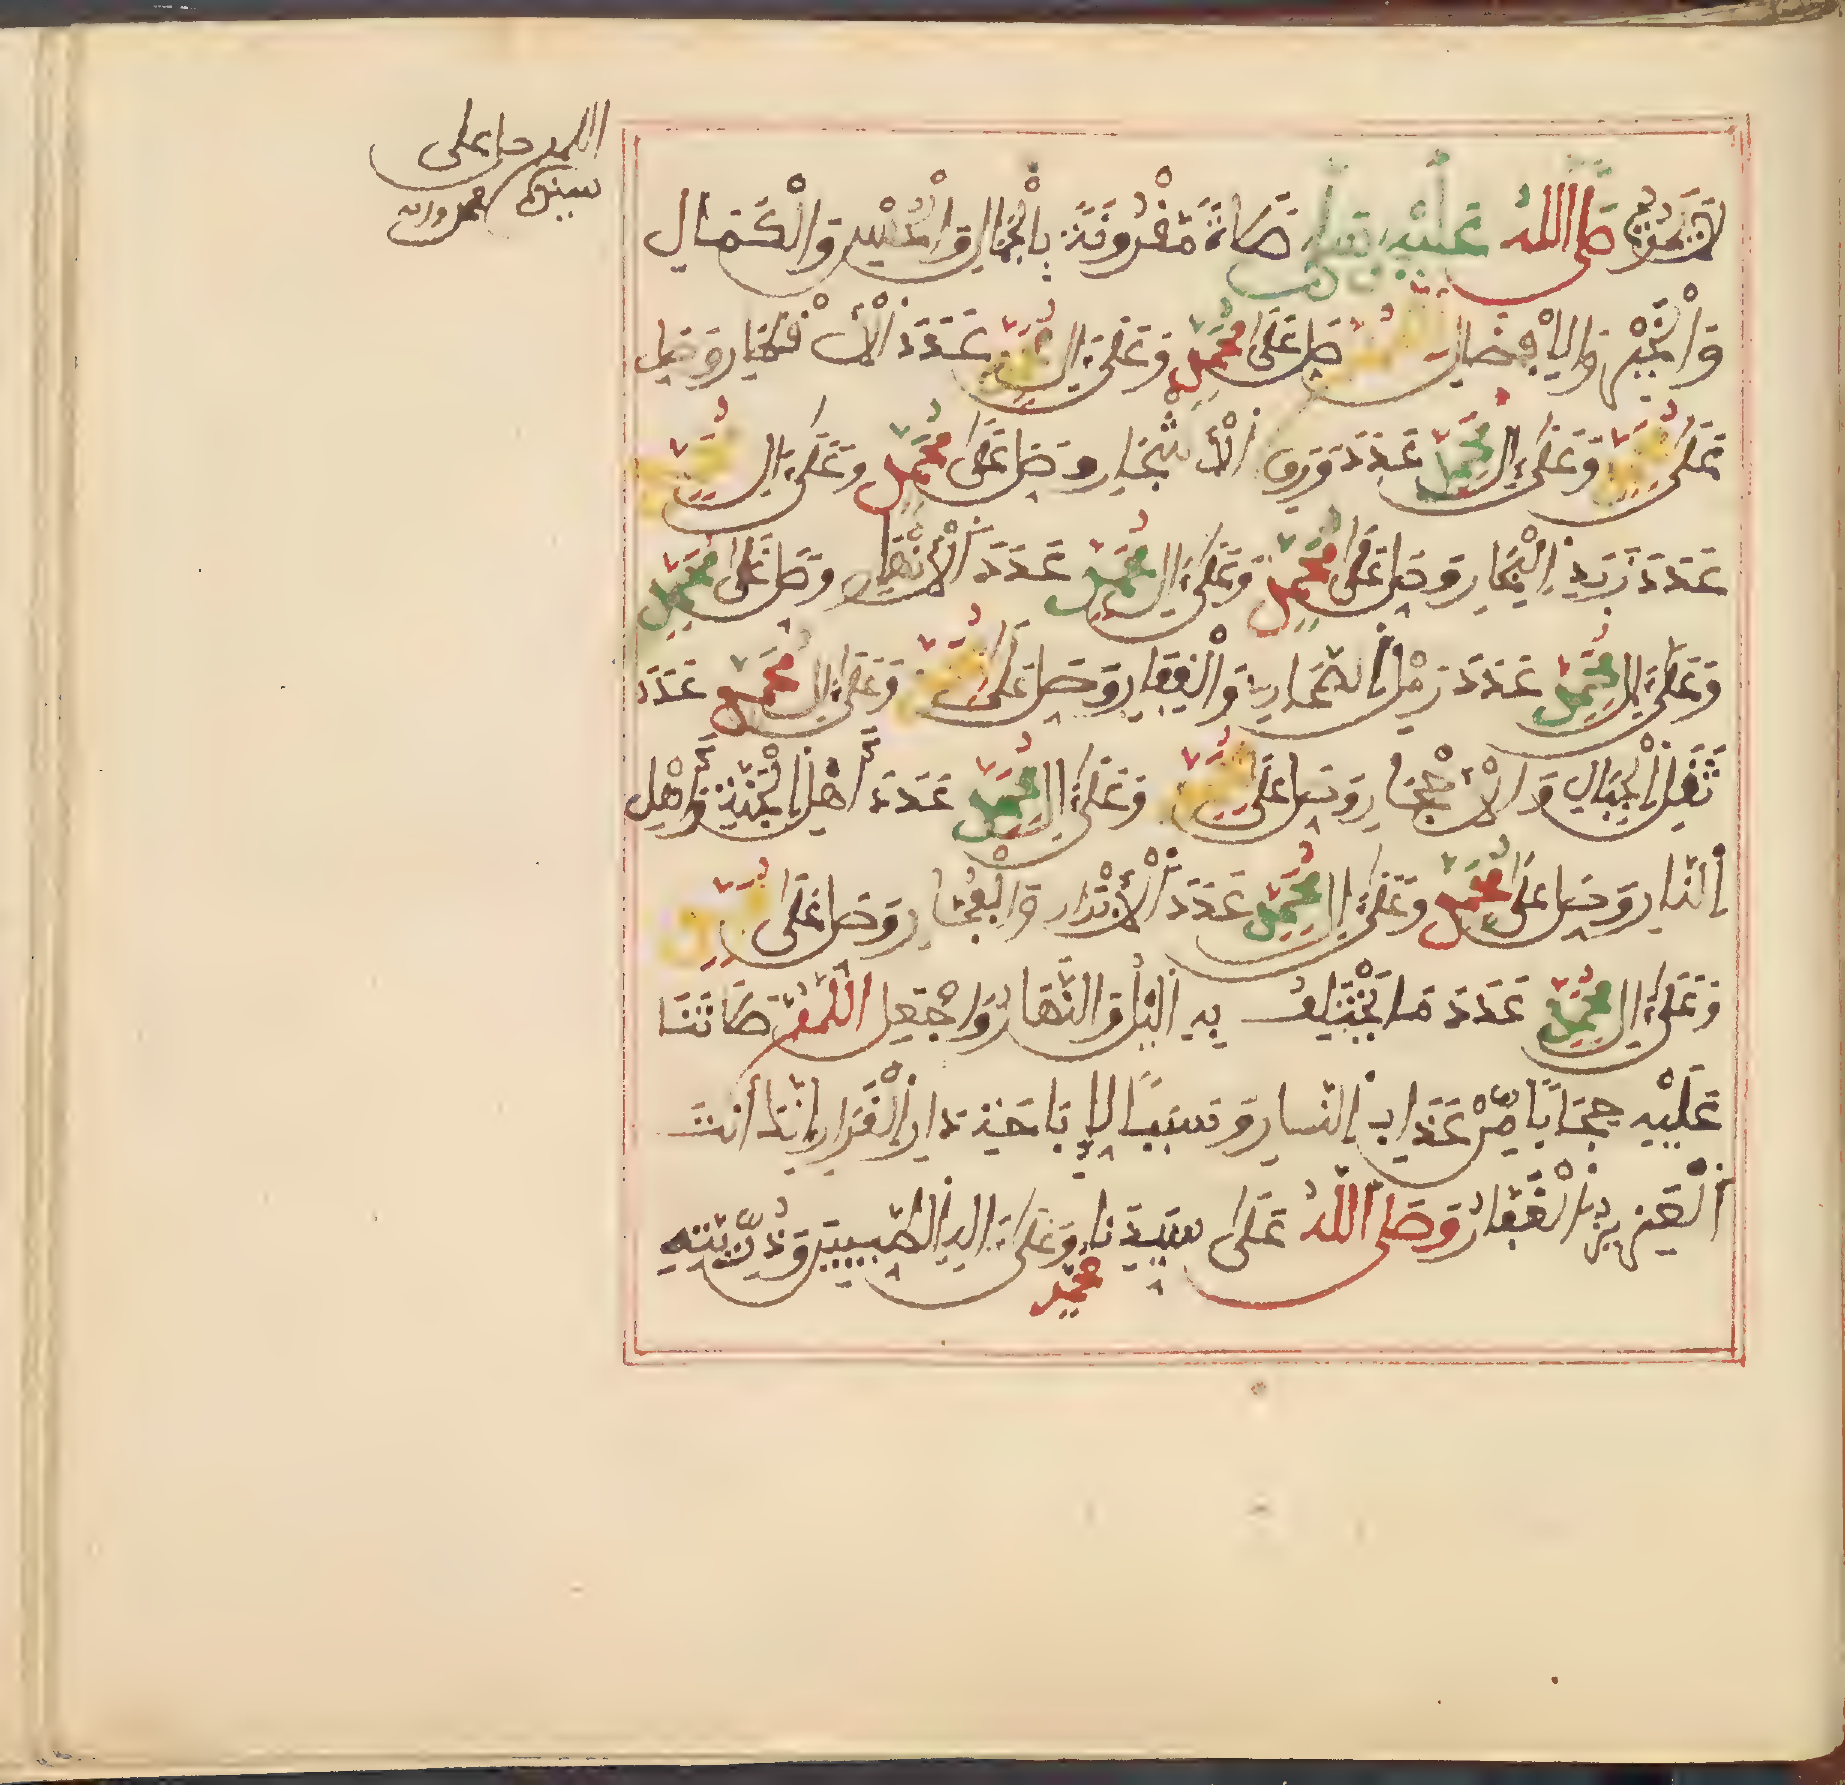 اللهم صل على
سيدنا محمد وءاله
صلى الله عليه وسلم صلاة مقرونة بالجمال والحسن والكمال
والخير والإفضال اللهم صل على محمد وعلى ءال محمد عدد الأفطار وصل
على محمد وعلى ءال محمد عدد ورق الأشجار وصل على محمد وعلى ءال محمد
عدد زبد البحار وصل على محمد وعلى ءال محمد عدد الأنهار وصل على محمد
وعلى ءال محمد عدد رمل الصحارى والقفار وصل على محمد وعلى ءال محمد عدد
ثقل الجبال والأحجار وصل على محمد وعلى ءال محمد عدد أهل الجنة وأهل
النار وصل على محمد وعلى ءال محمد عدد الأبرار والفجار وصل على محمد
وعلى ءال محمد عدد ما يختلف به اليل والنهار واجعل اللهم صلاتنا
عليه حجابا من عذاب النار وسببا لإباحة دار القرار إنك أنت
العزيز الغفار وصلى الله على سيدنا محمد وعلى ءاله الطيبين وذريته